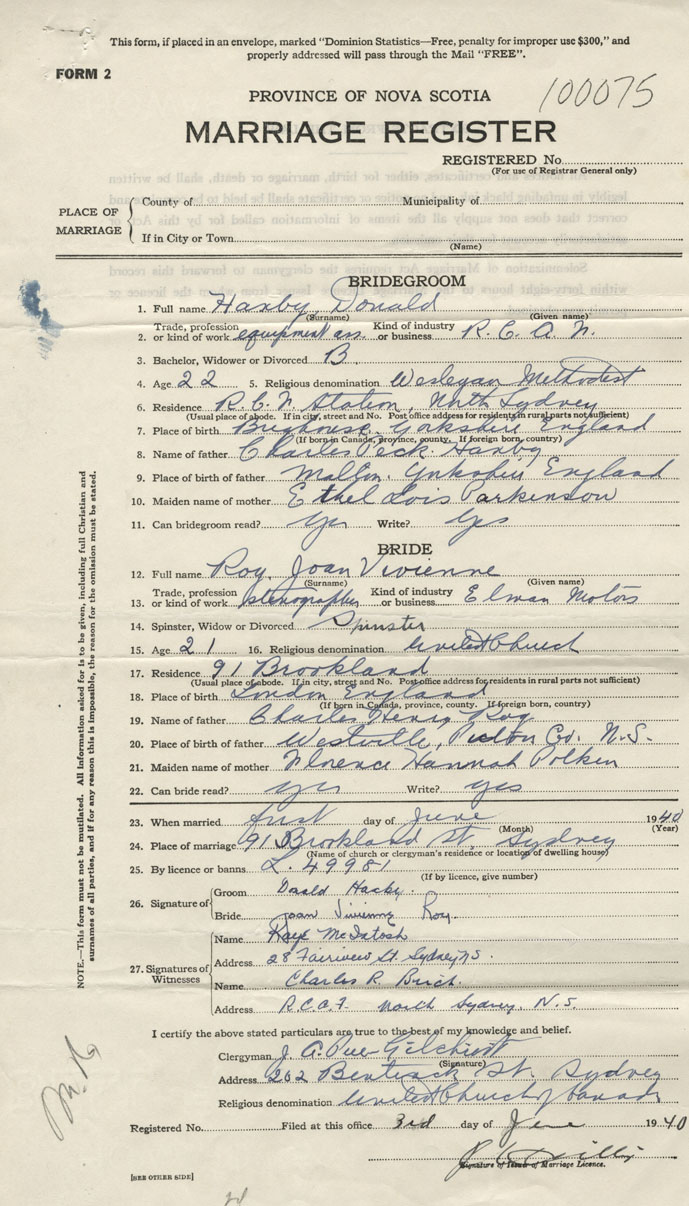 This form, if placed in an envelope, marked "Dominion Statistics—Free, penalty for improper use $300," and
properly addressed will pass through the Mail "FREE".
FORM 2
100075
PROVINCE OF NOVA SCOTIA
MARRIAGE REGISTER
REGISTERED No.
(For use of Registrar General only)
PLACE OF MARRIAGE
County of Municipality of
If in City or Town
(Name)
BRIDEGROOM
1. Full name Haxby, Donald
(Surname) (Given name)
2. Trade, profession or kind of work equipment ass. Kind of industry or business R.C.A.N.
3. Bachelor, Widower or Divorced B
4. Age 22 5. Religious denomination Wesleyan Methodist
6. Residence R.C.N. Station, North Sydney
(Usual place of abode. If in city, street and No. Post office address for residents in rural parts not sufficient)
7. Place of birth Brighouse, Yorkshire England
(If born in Canada, province, county. If foreign born, country)
8. Name of father Charles Peck Haxby
9. Place of birth of father Malton, Yorkshire England
10. Maiden name of mother Ethel Lois Parkinson
11. Can bridegroom read? Yes Write? Yes
BRIDE
12. Full name Roy, Joan Vivienne
(Surname) (Given name)
13. Trade, profession or kind of work stenographer Kind of industry or business Elman Motors
14. Spinster, Widow or Divorced Spinster
15. Age 21 16. Religious denomination United Church
17. Residence 91 Brookland
(Usual place of abode. If in city, street and No. Post office address for residents in rural parts not sufficient)
18. Place of birth London England
(If born in Canada, province, county. If foreign born, country)
19. Name of father Charles Henry Roy
20. Place of birth of father Westville, Pictou Co. N.S.
21. Maiden name of mother Florence Hannah Polkin
22. Can bride read? yes Write? yes
23. When married first day of June 1940
(Month) (Year)
24. Place of marriage 91 Brookland St, Sydney
(Name of church or clergyman's residence or location of dwelling house)
25. By licence or banns L. 49981
(If by licence, give number)
26. Signature of
Groom Donald Haxby.
Bride Joan Vivienne Roy.
27. Signatures of Witnesses
Name Kaye McIntosh
Address 28 Fairview St. Sydney N.S.
Name Charles R. Birch.
Address R.C.A.F. North Sydney, N.S.
I certify the above stated particulars are true to the best of my knowledge and belief.
Clergyman J. A. Gilchrist
(Signature)
Address 262 Bentinck St. Sydney
Religious denomination United Church of Canada
Registered No. Filed at this office 3rd day of June 1940
Signature of Issuer of Marriage Licence.
[SEE OTHER SIDE]
NOTE.—This form must not be mutilated. All Information asked for is to be given, including full Christian and
surnames of all parties, and if for any reason this is impossible, the reason for the omission must be stated.